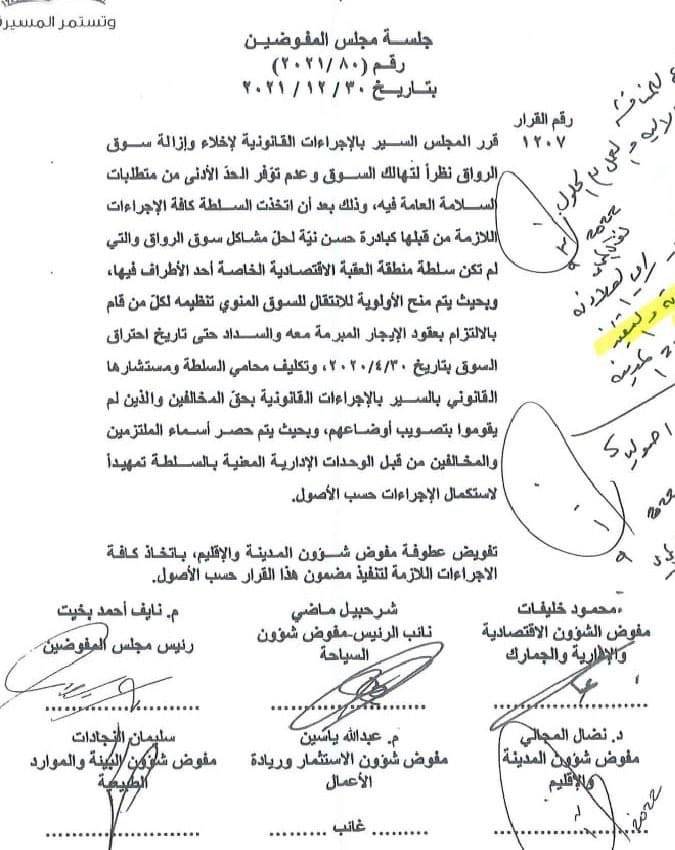 وتستمر المسيرة
جلسة مجلس المفوضين
رقم (٢٠٢١/٨٠)
بتاريخ ٢٠٢١/١٢/٣٠
رقم القرار
١٢٠٧
قرر المجلس السير بالإجراءات القانونية لإخلاء وإزالة سوق
الرواق نظراً لتهالك السوق وعدم توّفر الحدّ الأدنى من متطلبات
السلامة العامة فيه، وذلك بعد أن اتخذت السلطة كافة الإجراءات
اللازمة من قبلها كبادرة حسن نيّة لحلّ مشاكل سوق الرواق والتي
لم تكن سلطة منطقة العقبة الاقتصادية الخاصة أحد الأطراف فيها،
وبحيث يتم منح الأولوية للانتقال للسوق المنوي تنظيمه لكلّ من قام
بالالتزام بعقود الإيجار المبرمة معه والسداد حتى تاريخ احتراق
السوق بتاريخ ٢٠٢٠/٤/٣٠، وتكليف محامي السلطة ومستشارها
القانوني بالسير بالإجراءات القانونية بحقّ المخالفين والذين لم
يقوموا بتصويب أوضاعهم، وبحيث يتم حصر أسماء الملتزمين
والمخالفين من قبل الوحدات الإدارية المعنية بالسلطة تمهيداً
لاستكمال الإجراءات حسب الأصول.
تفويض عطوفة مفوض شؤون المدينة والإقليم، باتخاذ كافة
الاجراءات اللازمة لتنفيذ مضمون هذا القرار حسب الأصول.
محمود خليفات
مفوض الشؤون الاقتصادية
والإدارية والجمارك
شرحبيل ماضي
نائب الرئيس-مفوض شؤون
السياحة
م. نايف أحمد بخيت
رئيس مجلس المفوضين
د. نضال المجالي
مفوض شؤون المدينة
والإقليم
م. عبدالله ياسين
مفوض شؤون الاستثمار وريادة
الأعمال
......... غائب .........
سليمان النجادات
مفوض شؤون البيئة والموارد
الطبيعية